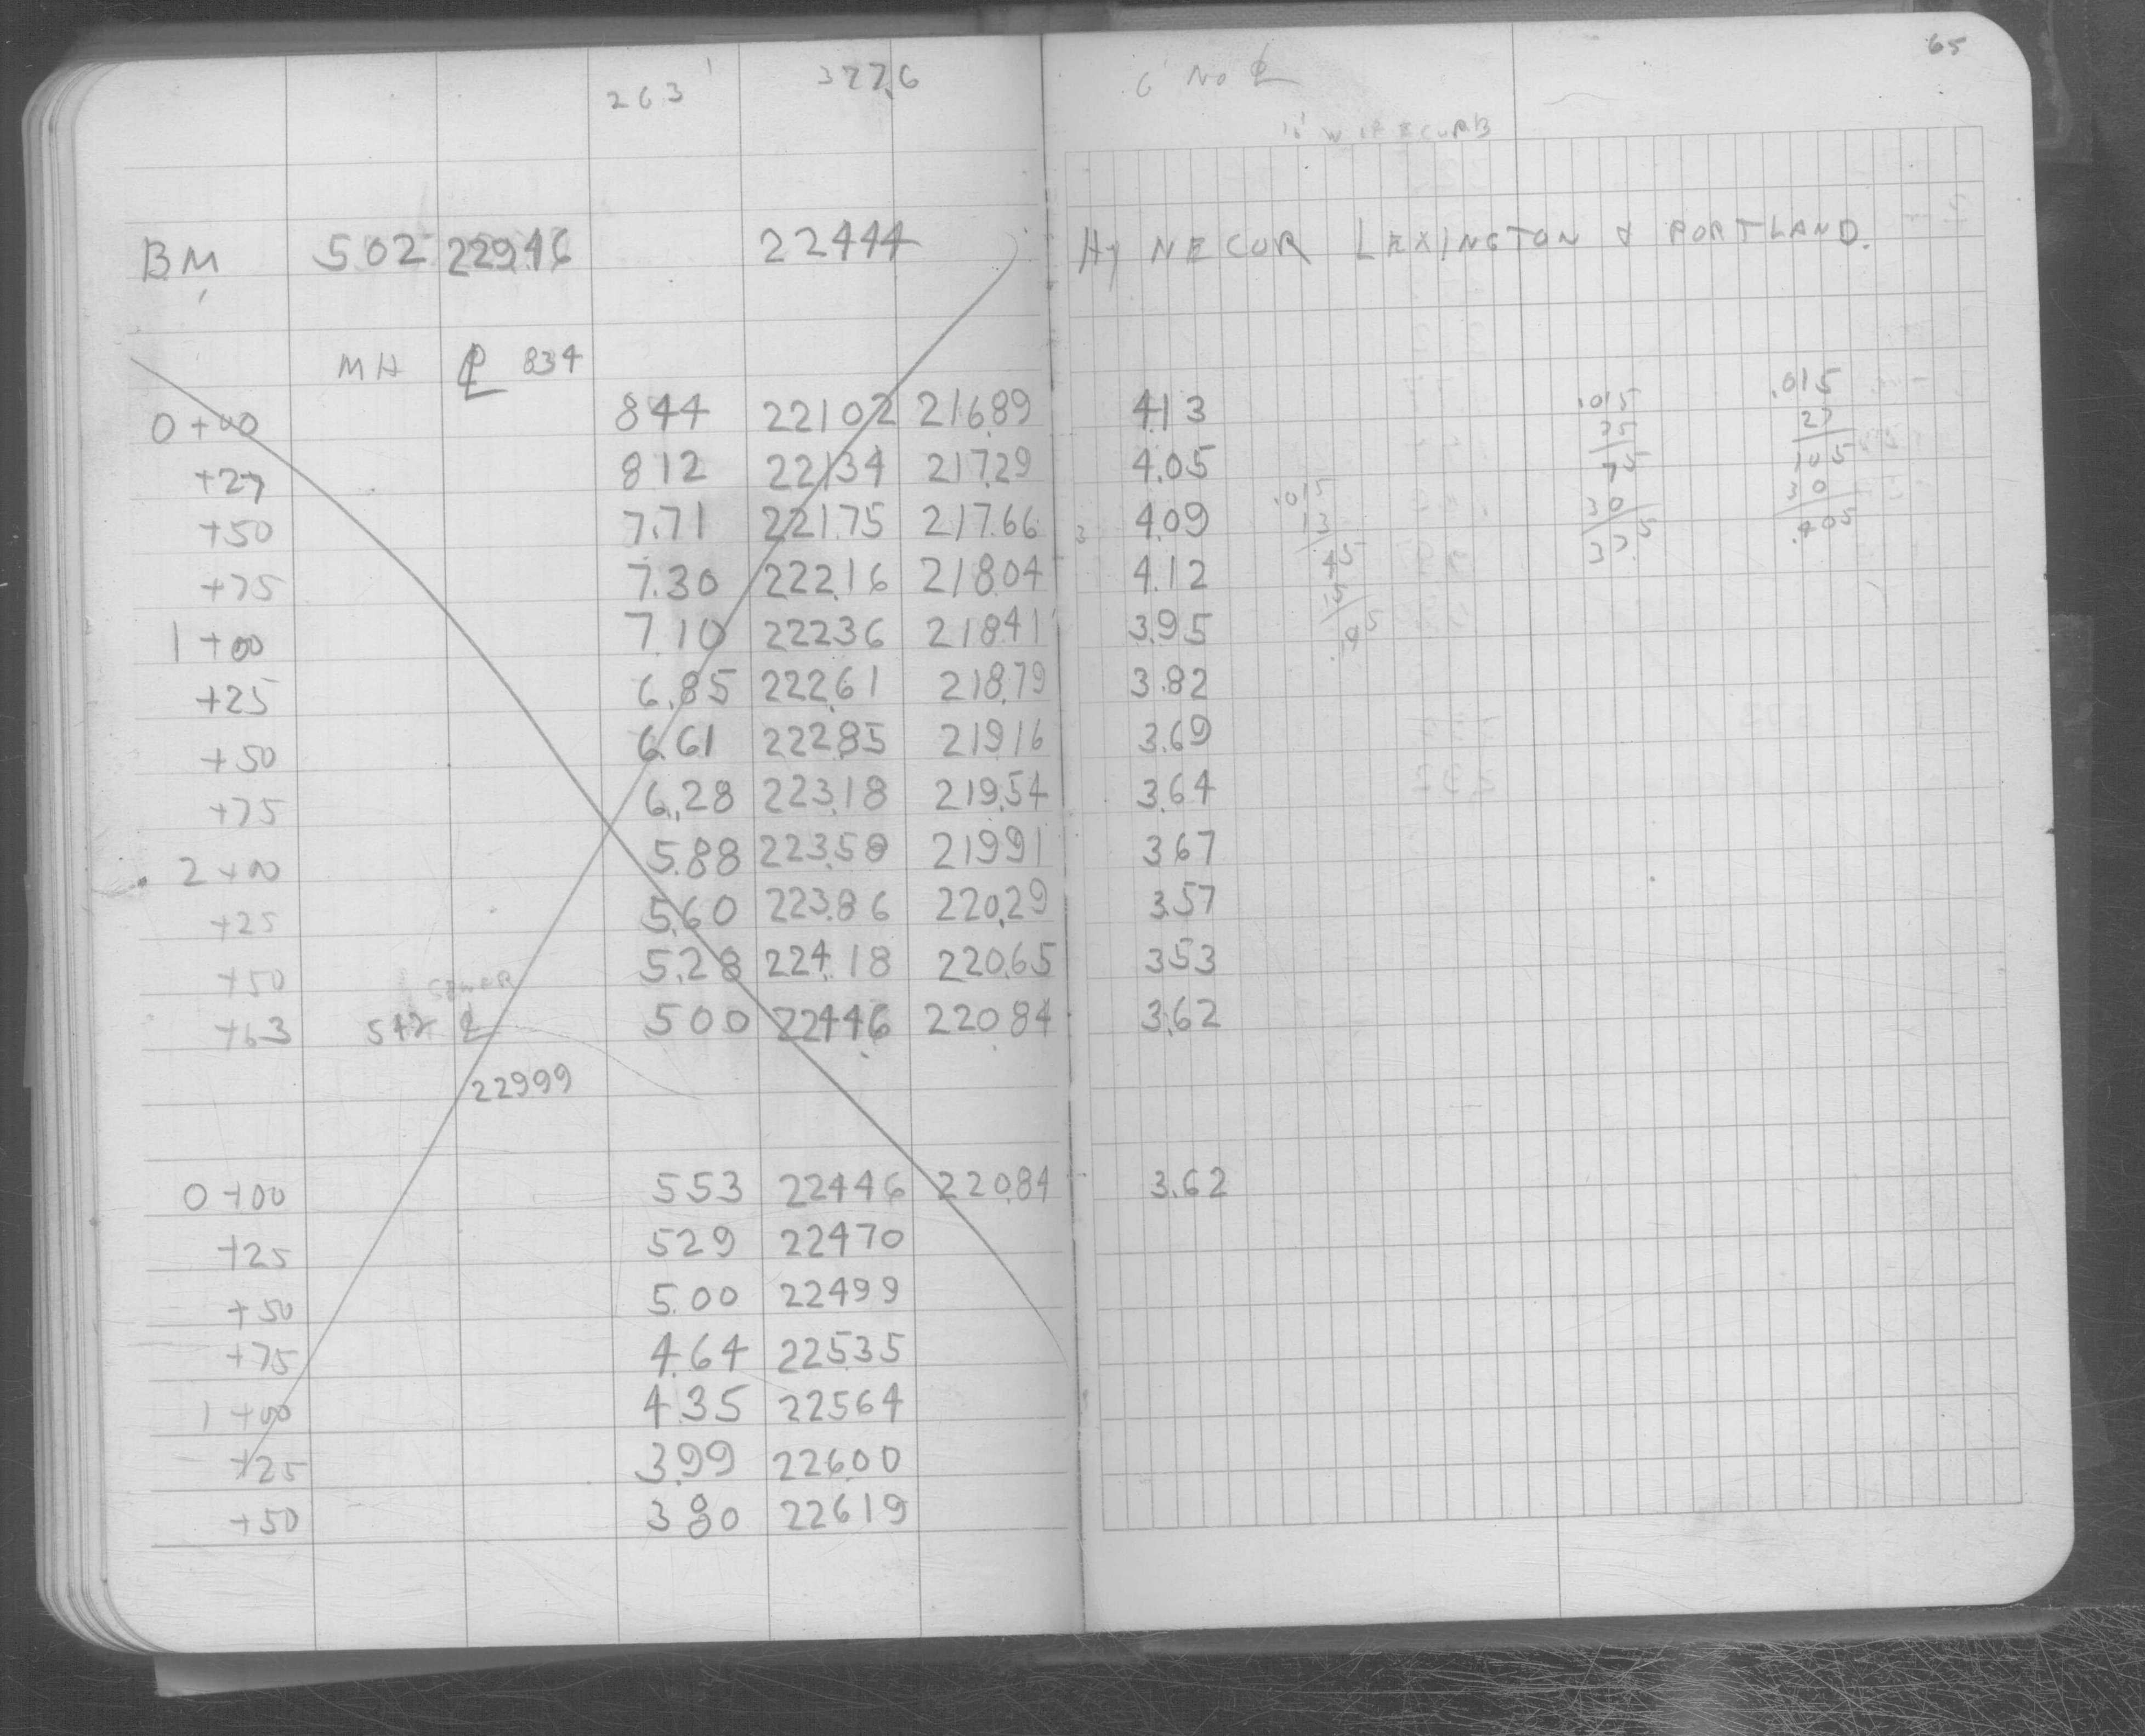 65
263' 377.6 6' No ℄
16' W OF E CURB
BM 502 229.46 224.44 Hy NE COR LEXINGTON & PORTLAND.
MH ℄ 834
0+00 844 22102 216.89 4.13
+27 812 22134 217.29 4.05
+50 7.71 221.75 217.66 4.09
+75 7.30 222.16 218.04 4.12
1+00 7.10 22236 218.41 3.95
+25 6.85 222.61 218.79 3.82
+50 6.61 222.85 21916 3.69
+75 6.28 223.18 219.54 3.64
2+00 5.88 223.58 21991 3.67
+25 5.60 223.86 220.29 3.57
+50 5.28 224.18 220.65 353
SEWER
+63 542 ℄ 500 224.46 220.84 3.62
22999
0+00 553 22446 220.84 3.62
+25 529 22470
+50 5.00 22499
+75 4.64 225.35
1+00 4.35 22564
+25 3.99 226.00
+50 380 22619
.015
13
45
15
.195
.015
25
75
30
37.5
.015
27
105
30
.405